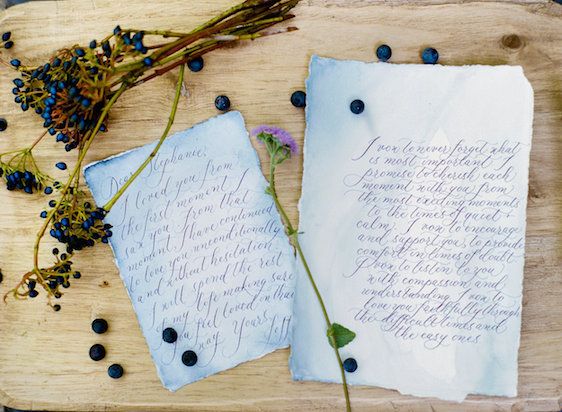 Dear Stephanie,
I loved you from
the first moment I
saw you. From that
moment, I have continued
to love you unconditionally
and without hesitation.
I will spend the rest
of my life making sure
you feel loved in that
way. Yours, Jeff
I vow to never forget what
is most important. I
promise to cherish each
moment with you, from
the most exciting moments
to the times of quiet +
calm. I vow to encourage
and support you, to provide
comfort in times of doubt.
I vow to listen to you
with compassion and
understanding. I vow to
love you faithfully through
the difficult times and
the easy ones.